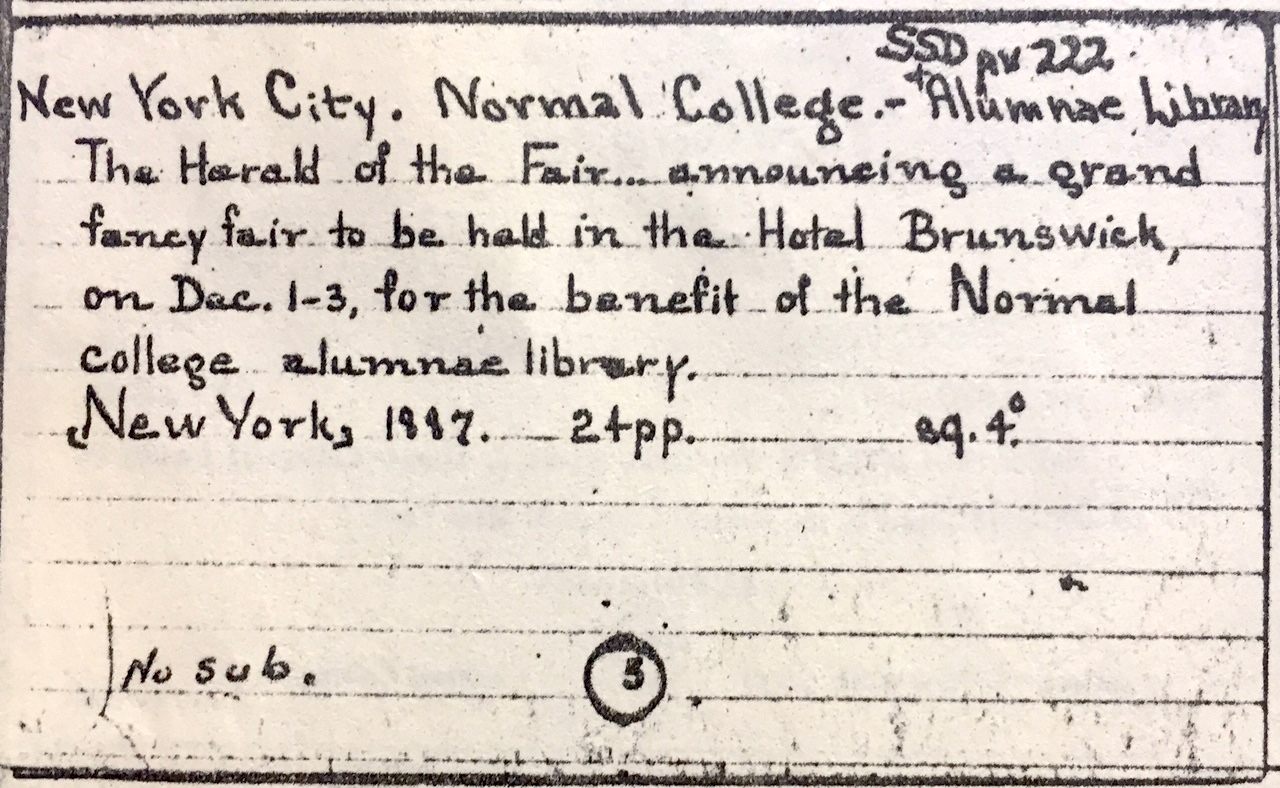 SSD pv 222
New York City. Normal College.- Alumnae Library
The Herald of the Fair... announcing a grand
fancy fair to be held in the Hotel Brunswick,
on Dec. 1-3, for the benefit of the Normal
college alumnae library.
[New York, 1887. 24pp. sq. 4.°
No sub.